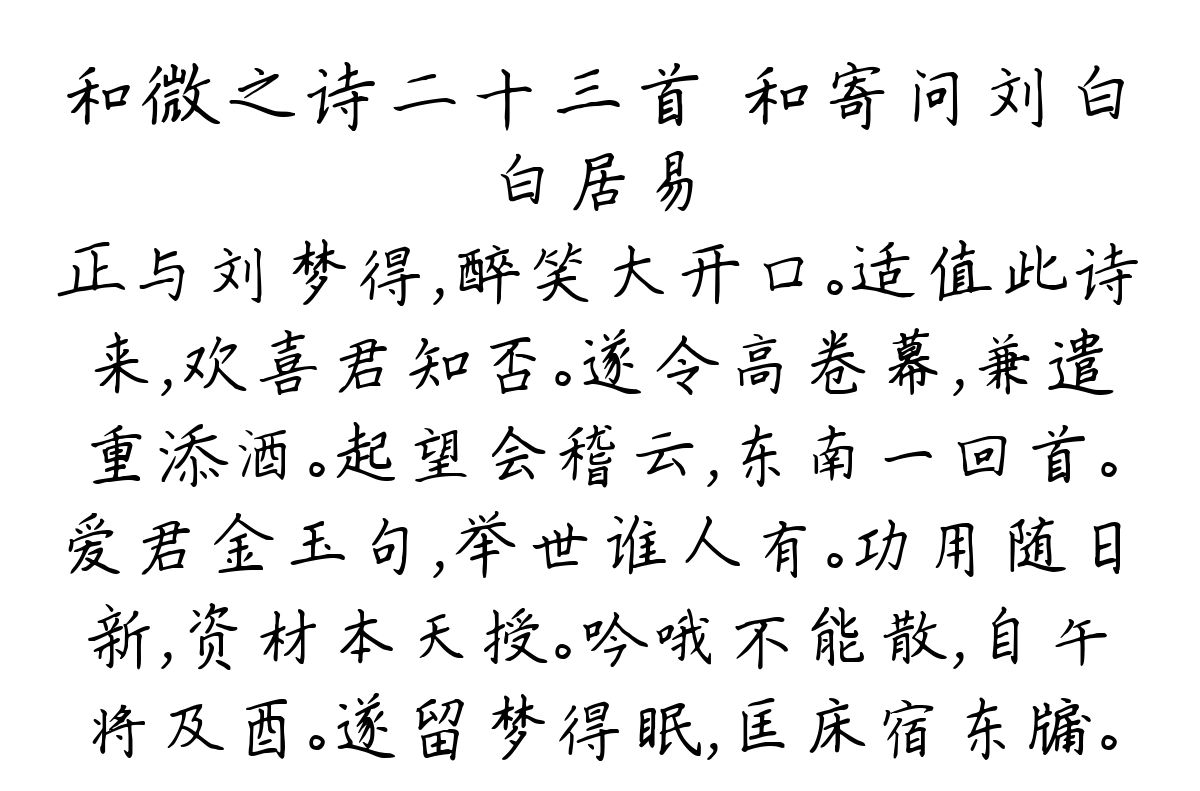 和微之诗二十三首 和寄问刘白
白居易
正与刘梦得,醉笑大开口。适值此诗
来,欢喜君知否。遂令高卷幕,兼遣
重添酒。起望会稽云,东南一回首。
爱君金玉句,举世谁人有。功用随日
新,资材本天授。吟哦不能散,自午
将及酉。遂留梦得眠,匡床宿东牖。